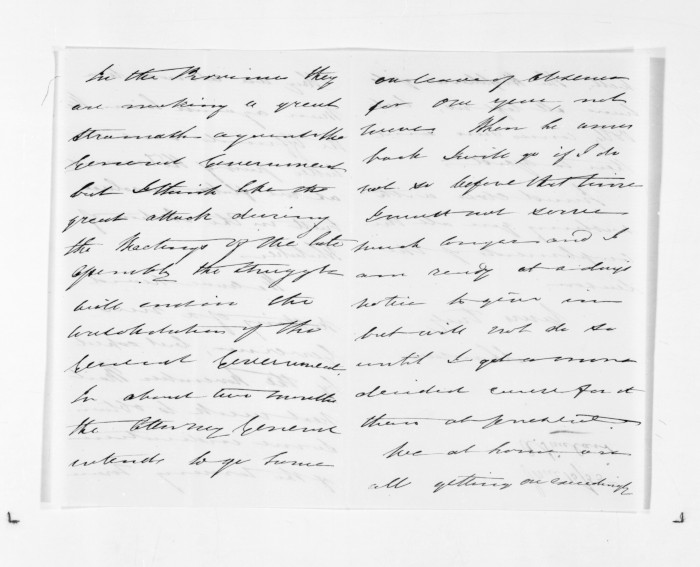 In the Province they
are making a great
against the
General Government
but I think like the
great attack during
the Meetings of the late
Assembly the struggle
will end in the
consolidation of the
General Government.
In about two months
the Attorney General
intends to go home
on leave of absence
for one year, not
more. When he comes
back I will go if I do
not so before that time
I must not serve
much longer and I
am ready at a days
notice to give in
but will not do so
until I get a more
decided cause for it
than at present.
We at home are
all getting on exceedingly